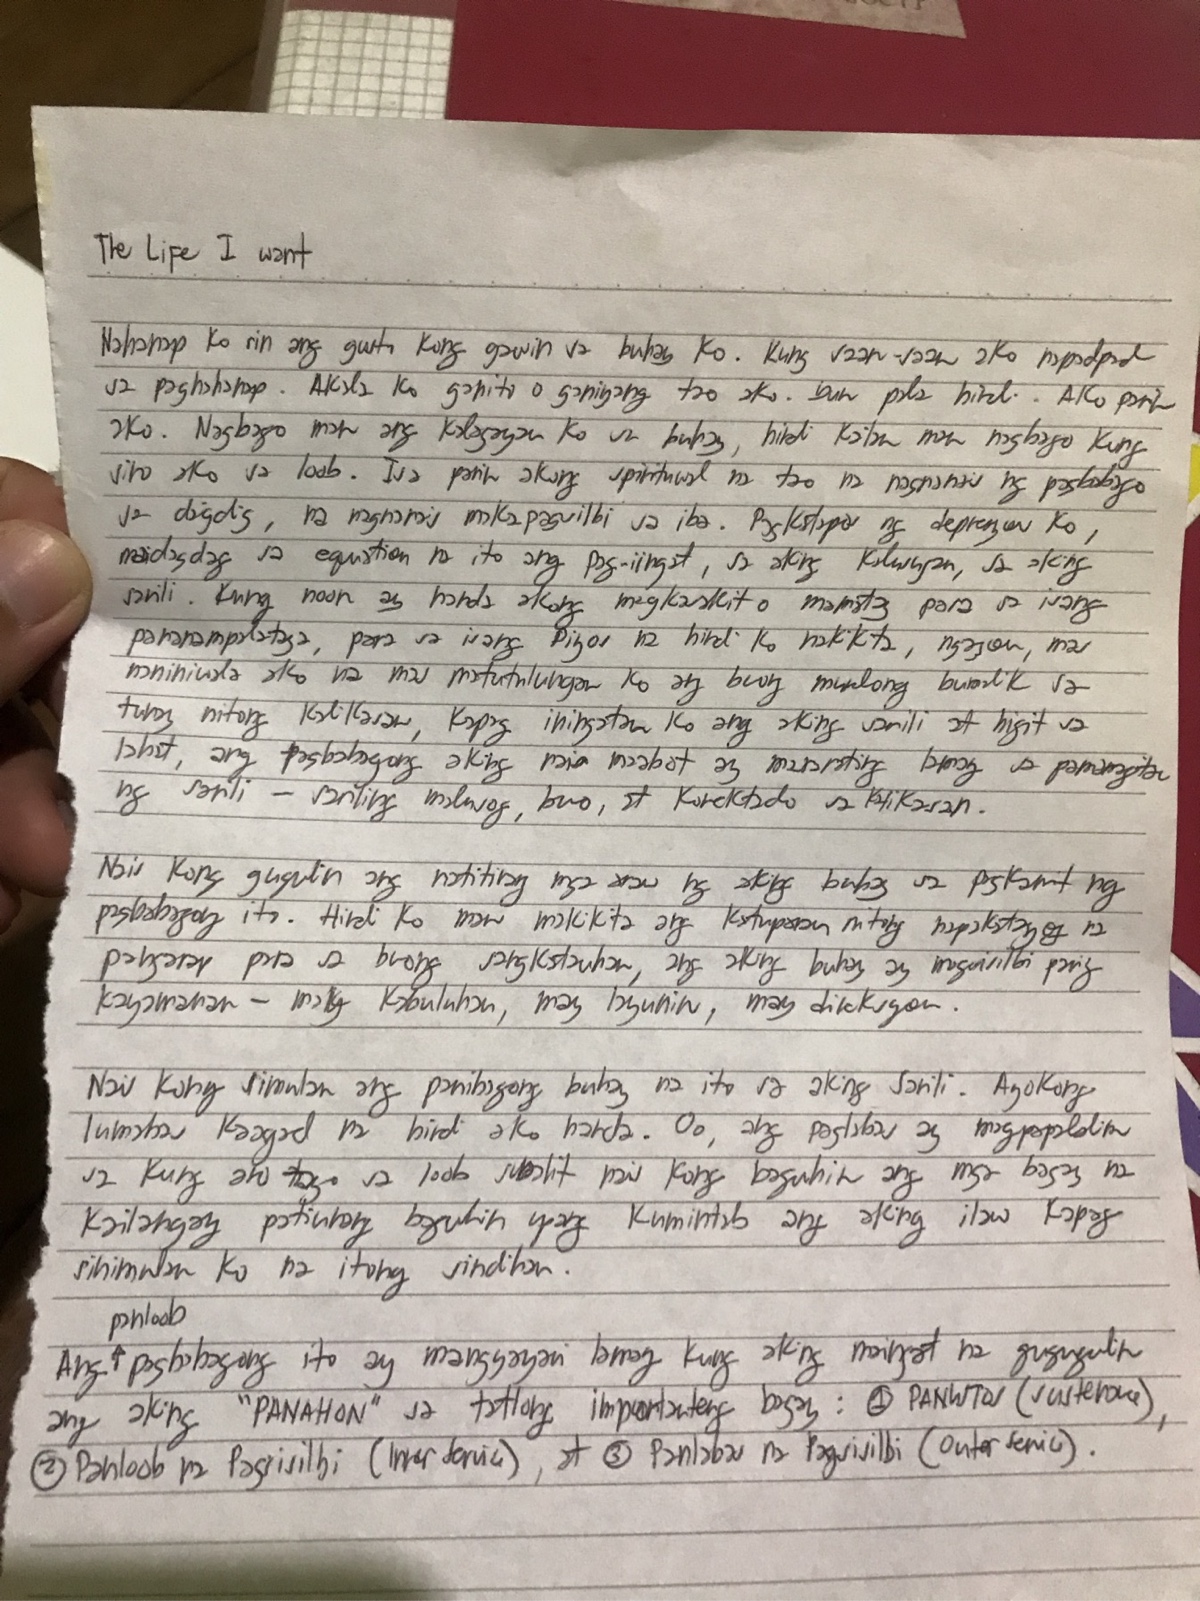 The Life I want
Nahanap ko rin ang gusto kong gawin sa buhay ko. Kung saan-saan ako napadpad
sa paghahanap. Akala ko ganito o ganiyang tao ako. Yun pala hindi. Ako parin
ako. Nagbago man ang kalagayan ko sa buhay, hindi kailan man nagbago kung
sino ako sa loob. Isa parin akong spiritwal na tao na nagnanais ng pagbabago
sa daigdig, na nagnanais makapagsilbi sa iba. Pagkatapos ng depresyon ko,
naidagdag sa equation na ito ang pag-iingat, sa aking kalusugan, sa aking
sarili. Kung noon ay handa akong magkasakit o mamatay para sa isang
pananampalataya, para sa isang Diyos na hindi ko nakikita, ngayon, mas
naniniwala ako na mas matutulungan ko ang buong mundong bumalik sa
tunay nitong kalikasan, kapag iningatan ko ang aking sarili at higit sa
lahat, ang pagbabagong aking nais maabot ay mararating lamang sa pamamagitan
ng sarili – sariling malusog, buo, at konektado sa kalikasan.
Nais kong gugulin ang natitirang mga araw ng aking buhay sa pagkamit ng
pagbabagong ito. Hindi ko man makikita ang katuparan nitong napakatayog na
pangarap para sa buong sangkatauhan, ang aking buhay ay magsisilbi paring
kayamanan – may kabuluhan, may layunin, may direksyon.
Nais kong simulan ang panibagong buhay na ito sa aking sarili. Ayokong
lumabas kaagad na hindi ako handa. Oo, ang paglabas ay magpapalalim
sa kung ano sa loob subalit nais kong baguhin ang mga bagay na
kailangang patiunang baguhin upang kumintab ang aking ilaw kapag
sinimulan ko na itong sindihan.
panloob
Ang ↑ pagbabagong ito ay mangyayari lamang kung aking maingat na gugugulin
ang aking "PANAHON" sa tatlong importanteng bagay: ① PANUTOS (sustenance),
② Panloob na Pagsisilbi (Inner Service), at ③ Panlabas na Pagsisilbi (Outer Service).